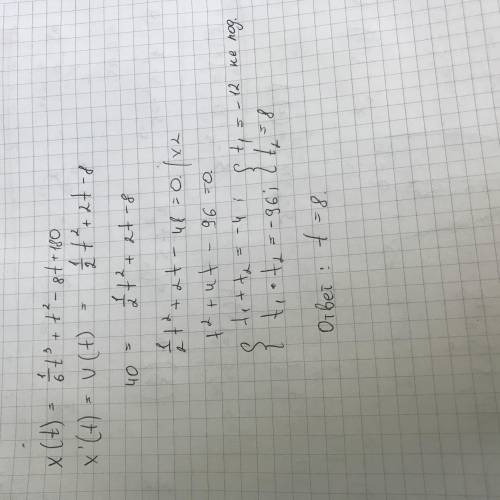 x(t) = 1/6 t³ + t² - 8t + 180
x'(t) = v(t) = 1/2 t² + 2t - 8
40 = 1/2 t² + 2t - 8
1/2 t² + 2t - 48 = 0. | x2
t² + 4t - 96 = 0.
{ t₁ + t₂ = -4 ; { t₁ = -12 не под.
{ t₁ • t₂ = -96 ; { t₂ = 8
Ответ : t = 8.